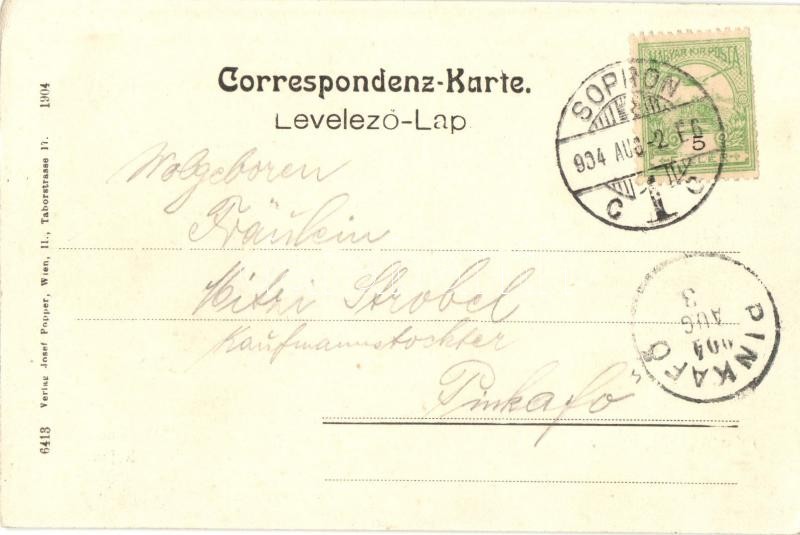 Correspondenz-Karte.
Levelező-Lap
MAGYAR KIR. POSTA
5
SOPRON
904 AUG -2. E6
C 1 C
Wolgeboren
Fräulein
Mitzi Strobel
Kaufmannstochter
Pinkafő
PINKAFŐ
904
AUG
3
6413 Verlag Josef Popper, Wien, II., Taborstrasse 17. 1904